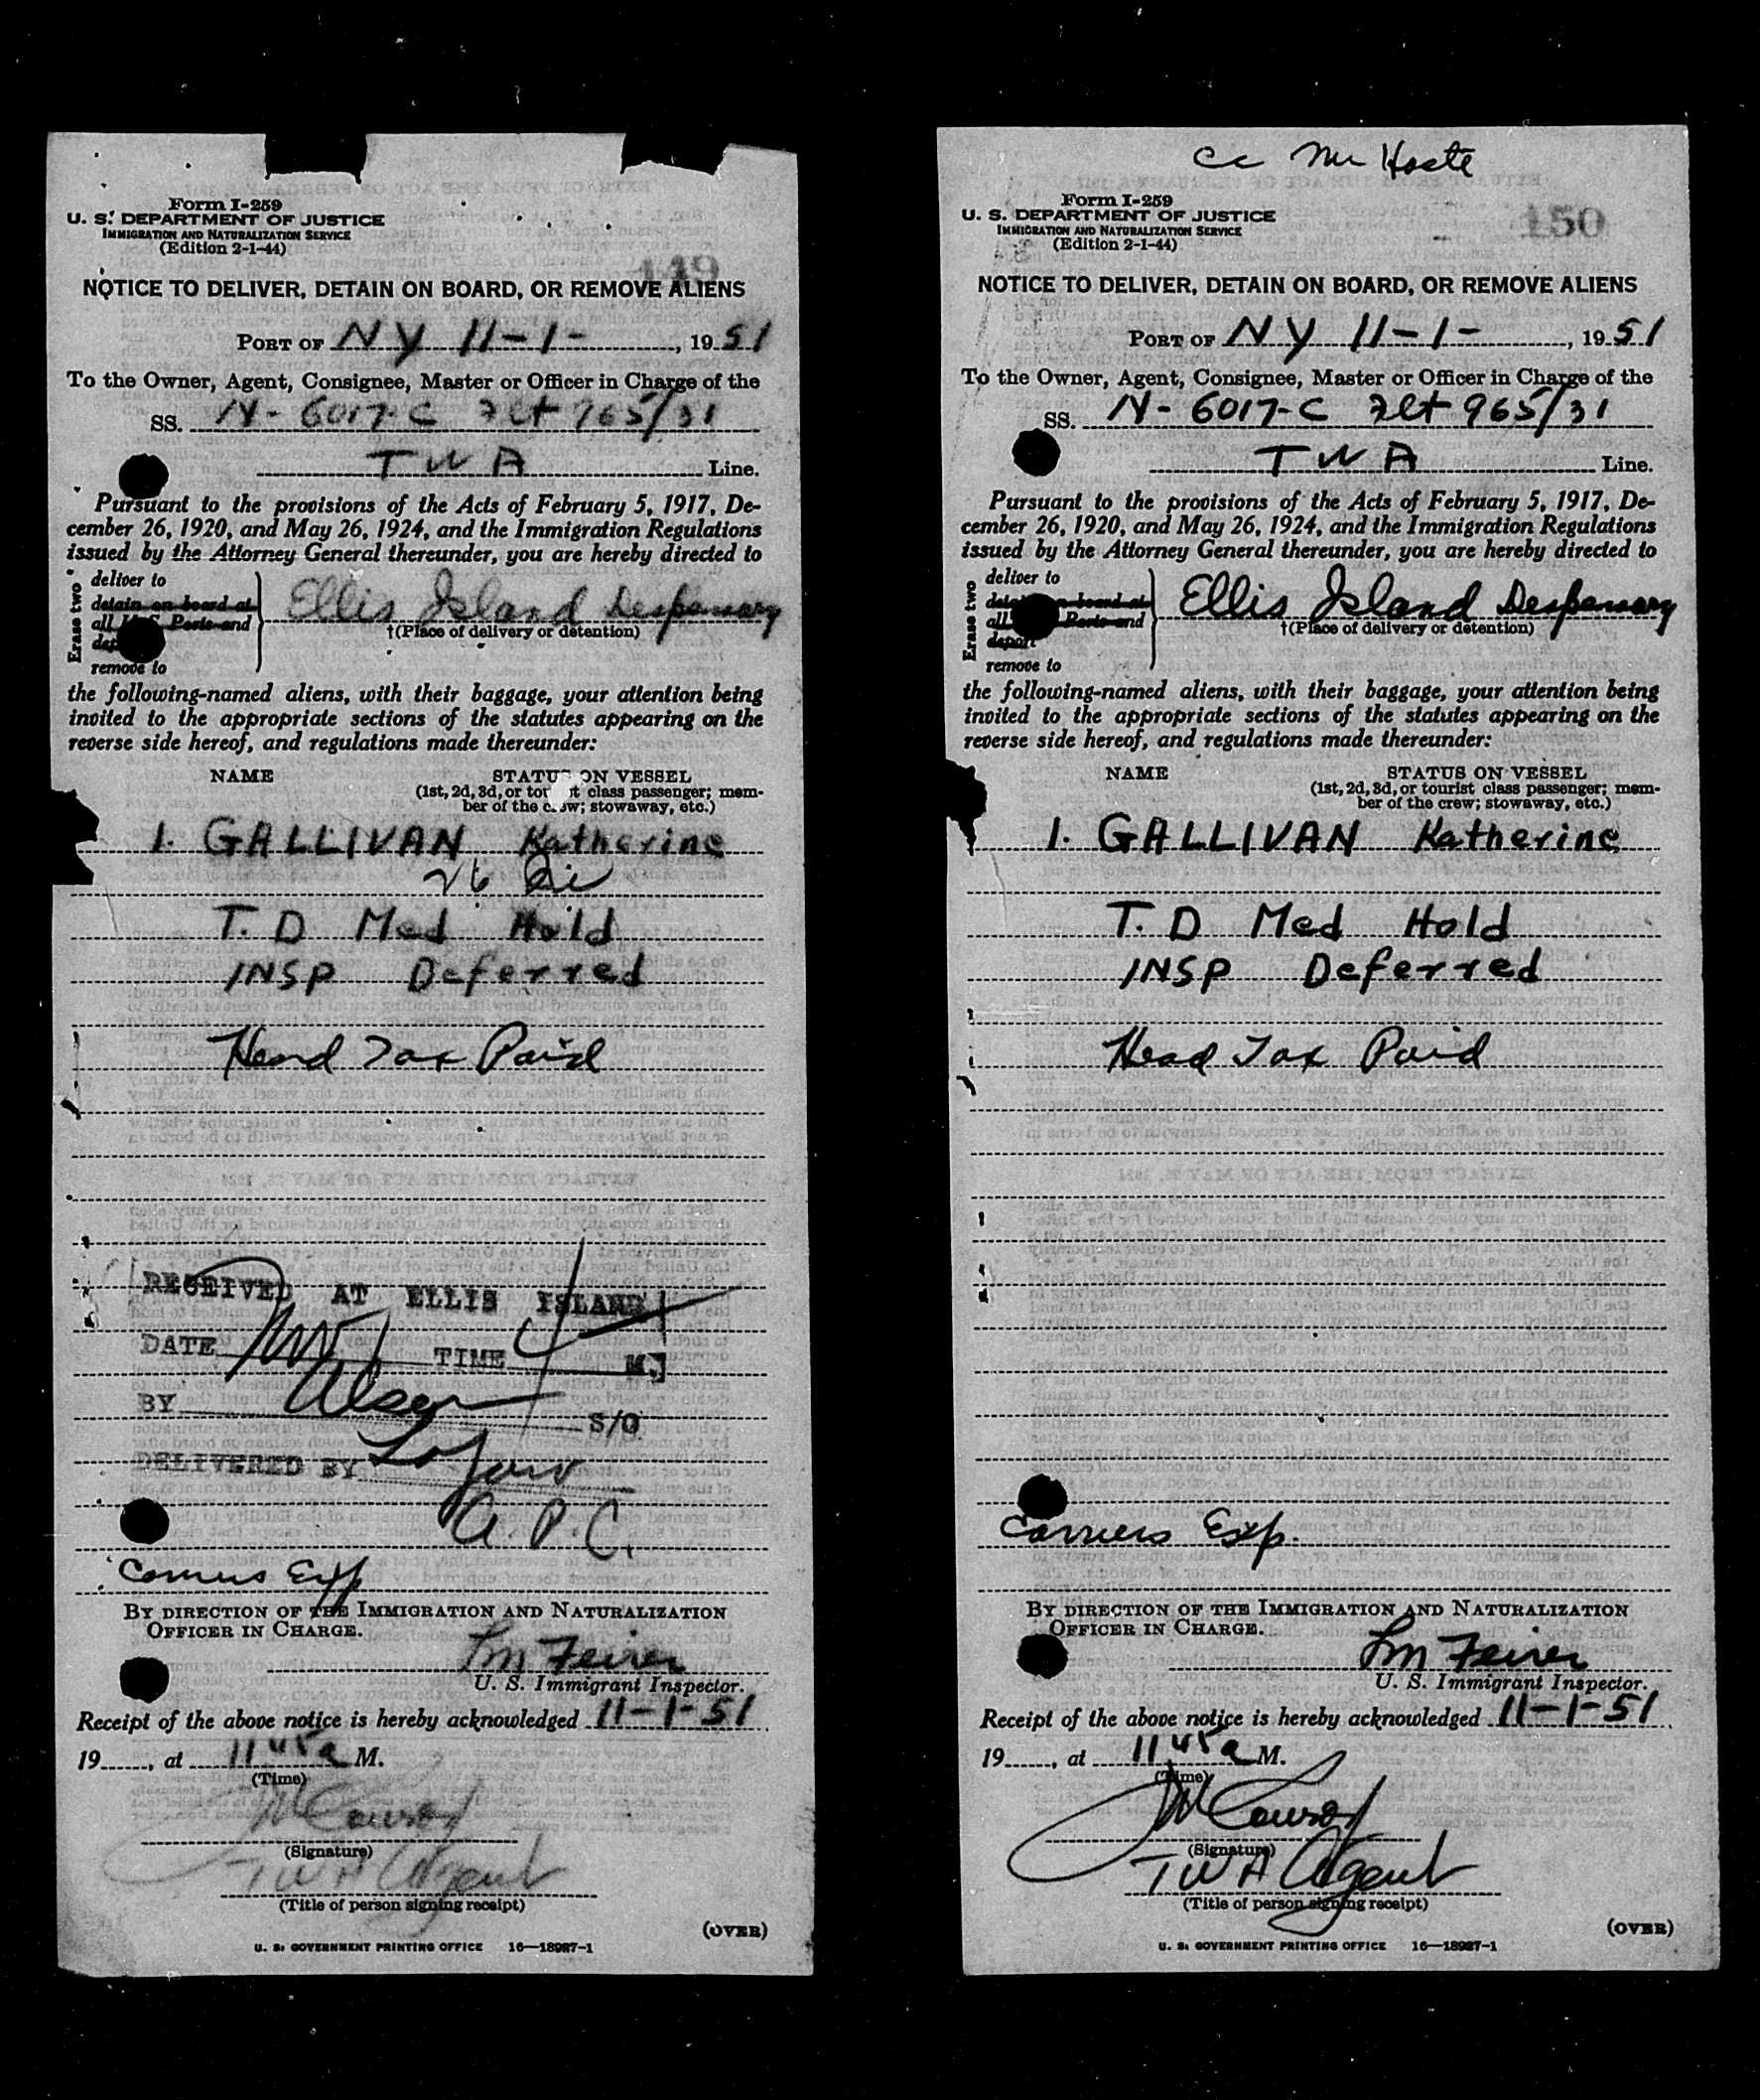 Form I-259
U. S. DEPARTMENT OF JUSTICE
IMMIGRATION AND NATURALIZATION SERVICE
(Edition 2-1-44)
149
NOTICE TO DELIVER, DETAIN ON BOARD, OR REMOVE ALIENS
PORT OF NY 11-1-, 1951
To the Owner, Agent, Consignee, Master or Officer in Charge of the
SS. N-6017-C Flt 965/31
TWA Line.
Pursuant to the provisions of the Acts of February 5, 1917, De-
cember 26, 1920, and May 26, 1924, and the Immigration Regulations
issued by the Attorney General thereunder, you are hereby directed to
Erase two
deliver to
detain on board at
all Ports and
remove to
Ellis Island Despensary
†(Place of delivery or detention)
the following-named aliens, with their baggage, your attention being
invited to the appropriate sections of the statutes appearing on the
reverse side hereof, and regulations made thereunder:
NAME STATUS ON VESSEL
(1st, 2d, 3d, or tourist class passenger; mem-
ber of the crew; stowaway, etc.)
1. GALLIVAN Katherine
26
T. D Med Hold
INSP Deferred
Head Tax Paid
RECEIVED AT ELLIS ISLAND
DATE TIME M.
BY Olsen S/O
DELIVERED BY
A. P. C.
Carriers Exp
BY DIRECTION OF THE IMMIGRATION AND NATURALIZATION
OFFICER IN CHARGE.
U. S. Immigrant Inspector.
Receipt of the above notice is hereby acknowledged 11-1-51
19, at 11 45 a M.
(Time)
(Signature)
TWA Agent
(Title of person signing receipt)
(OVER)
U. S. GOVERNMENT PRINTING OFFICE 16—18927-1
cc Mr
Form I-259
U. S. DEPARTMENT OF JUSTICE
IMMIGRATION AND NATURALIZATION SERVICE
(Edition 2-1-44)
150
NOTICE TO DELIVER, DETAIN ON BOARD, OR REMOVE ALIENS
PORT OF NY 11-1-, 1951
To the Owner, Agent, Consignee, Master or Officer in Charge of the
SS. N-6017-C Flt 965/31
TWA Line.
Pursuant to the provisions of the Acts of February 5, 1917, De-
cember 26, 1920, and May 26, 1924, and the Immigration Regulations
issued by the Attorney General thereunder, you are hereby directed to
Erase two
deliver to
on board at
all Ports and
deport
remove to
Ellis Island Despensary
†(Place of delivery or detention)
the following-named aliens, with their baggage, your attention being
invited to the appropriate sections of the statutes appearing on the
reverse side hereof, and regulations made thereunder:
NAME STATUS ON VESSEL
(1st, 2d, 3d, or tourist class passenger; mem-
ber of the crew; stowaway, etc.)
1. GALLIVAN Katherine
T. D Med Hold
INSP Deferred
Head Tax Paid
Carriers Exp.
BY DIRECTION OF THE IMMIGRATION AND NATURALIZATION
OFFICER IN CHARGE.
U. S. Immigrant Inspector.
Receipt of the above notice is hereby acknowledged 11-1-51
19, at 11 45 a M.
(Time)
(Signature)
TWA Agent
(Title of person signing receipt)
(OVER)
U. S. GOVERNMENT PRINTING OFFICE 16—18927-1